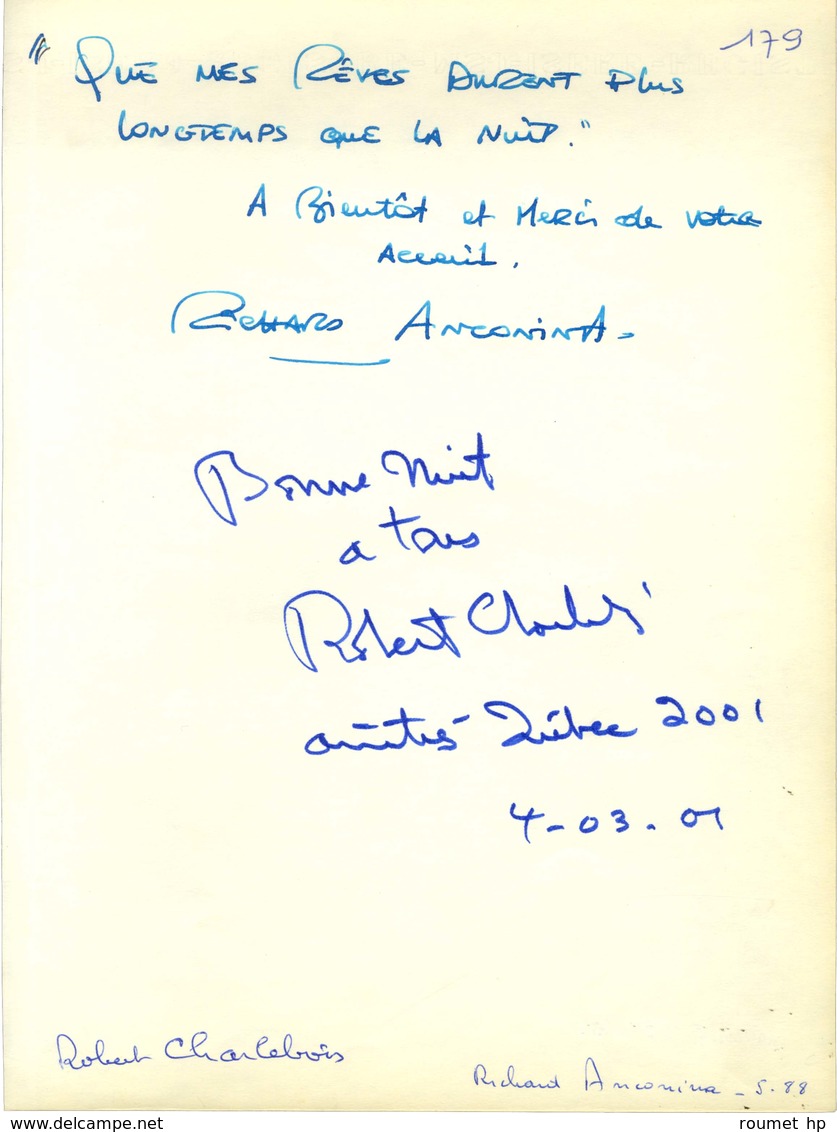 179
" QUE MES RÊVES DURENT PLUS
LONGTEMPS QUE LA NUIT."
A Bientôt et Merci de votre
Accueil.
RICHARD ANCONINA -
Bonne Nuit
a tous
Robert Charlebois
amitiés Québec 2001
4-03.01
Robert Charlebois
Richard Anconina - S. 88
delcampe.net
roumet hp